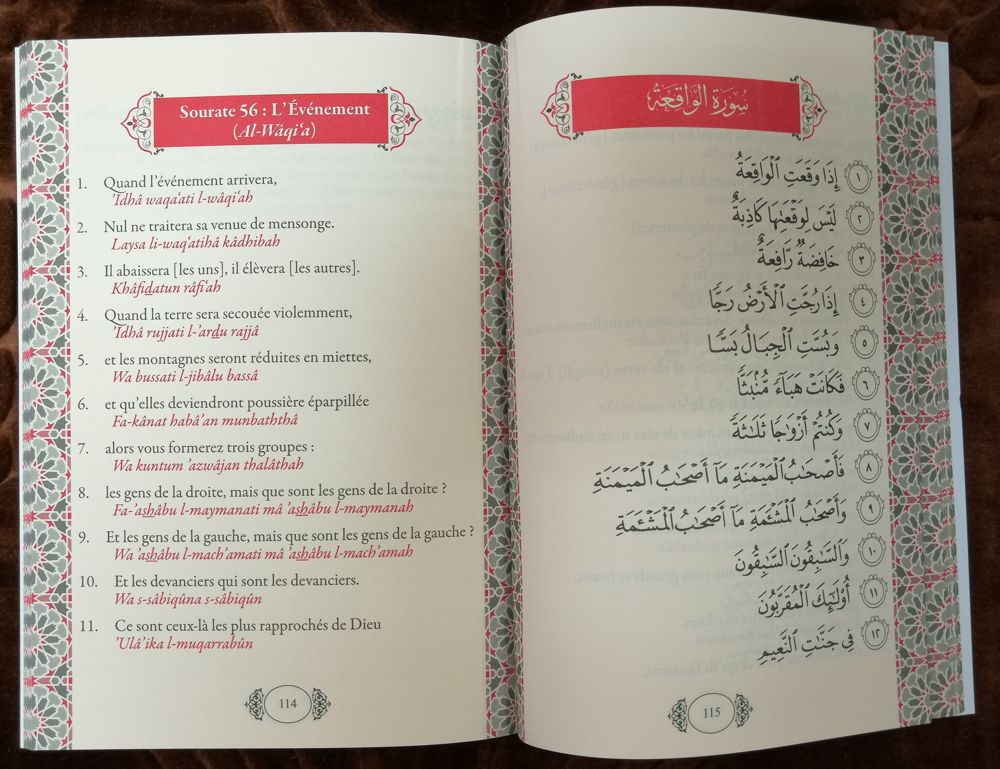 Sourate 56 : L'Événement
(Al-Wâqi‘a)
1. Quand l'événement arrivera,
’Idhâ waqa‘ati l-wâqi‘ah
2. Nul ne traitera sa venue de mensonge.
Laysa li-waq‘atihâ kâdhibah
3. Il abaissera [les uns], il élèvera [les autres].
Khâfidatun râfi‘ah
4. Quand la terre sera secouée violemment,
’Idhâ rujjati l-’ardu rajjâ
5. et les montagnes seront réduites en miettes,
Wa bussati l-jibâlu bassâ
6. et qu'elles deviendront poussière éparpillée
Fa-kânat habâ’an munbaththâ
7. alors vous formerez trois groupes :
Wa kuntum ’azwâjan thalâthah
8. les gens de la droite, mais que sont les gens de la droite ?
Fa-’ashâbu l-maymanati mâ ’ashâbu l-maymanah
9. Et les gens de la gauche, mais que sont les gens de la gauche ?
Wa ’ashâbu l-mach’amati mâ ’ashâbu l-mach’amah
10. Et les devanciers qui sont les devanciers.
Wa s-sâbiqûna s-sâbiqûn
11. Ce sont ceux-là les plus rapprochés de Dieu
’Ulâ’ika l-muqarrabûn
114
سُورَةُ الوَاقِعَةُ
إِذَا وَقَعَتِ ٱلْوَاقِعَةُ ١
لَيْسَ لِوَقْعَتِهَا كَاذِبَةٌ ٢
خَافِضَةٌ رَّافِعَةٌ ٣
إِذَا رُجَّتِ ٱلْأَرْضُ رَجًّا ٤
وَبُسَّتِ ٱلْجِبَالُ بَسًّا ٥
فَكَانَتْ هَبَآءً مُّنۢبَثًّا ٦
وَكُنتُمْ أَزْوَٰجًا ثَلَٰثَةً ٧
فَأَصْحَٰبُ ٱلْمَيْمَنَةِ مَآ أَصْحَٰبُ ٱلْمَيْمَنَةِ ٨
وَأَصْحَٰبُ ٱلْمَشْـَٔمَةِ مَآ أَصْحَٰبُ ٱلْمَشْـَٔمَةِ ٩
وَٱلسَّٰبِقُونَ ٱلسَّٰبِقُونَ ١٠
أُو۟لَٰٓئِكَ ٱلْمُقَرَّبُونَ ١١
فِي جَنَّٰتِ ٱلنَّعِيمِ ١٢
115